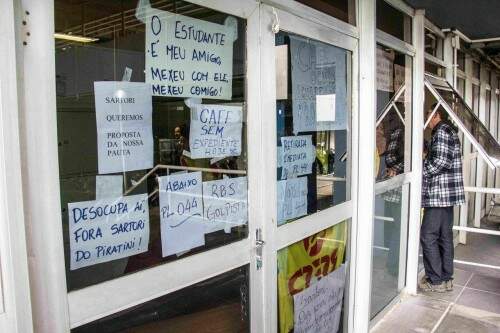 O ESTUDANTE
É MEU AMIGO,
MEXEU COM ELE,
MEXEU COMIGO!
SARTORI
QUEREMOS
PROPOSTA
DA NOSSA
PAUTA
CAFÉ
SEM
EXPEDIENTE
HOJE
DESOCUPA AÍ,
FORA SARTORI
DO PIRATINI!
ABAIXO
PL 044
RBS
GOLPISTA
RETIRADA
IMEDIATA
PL 44